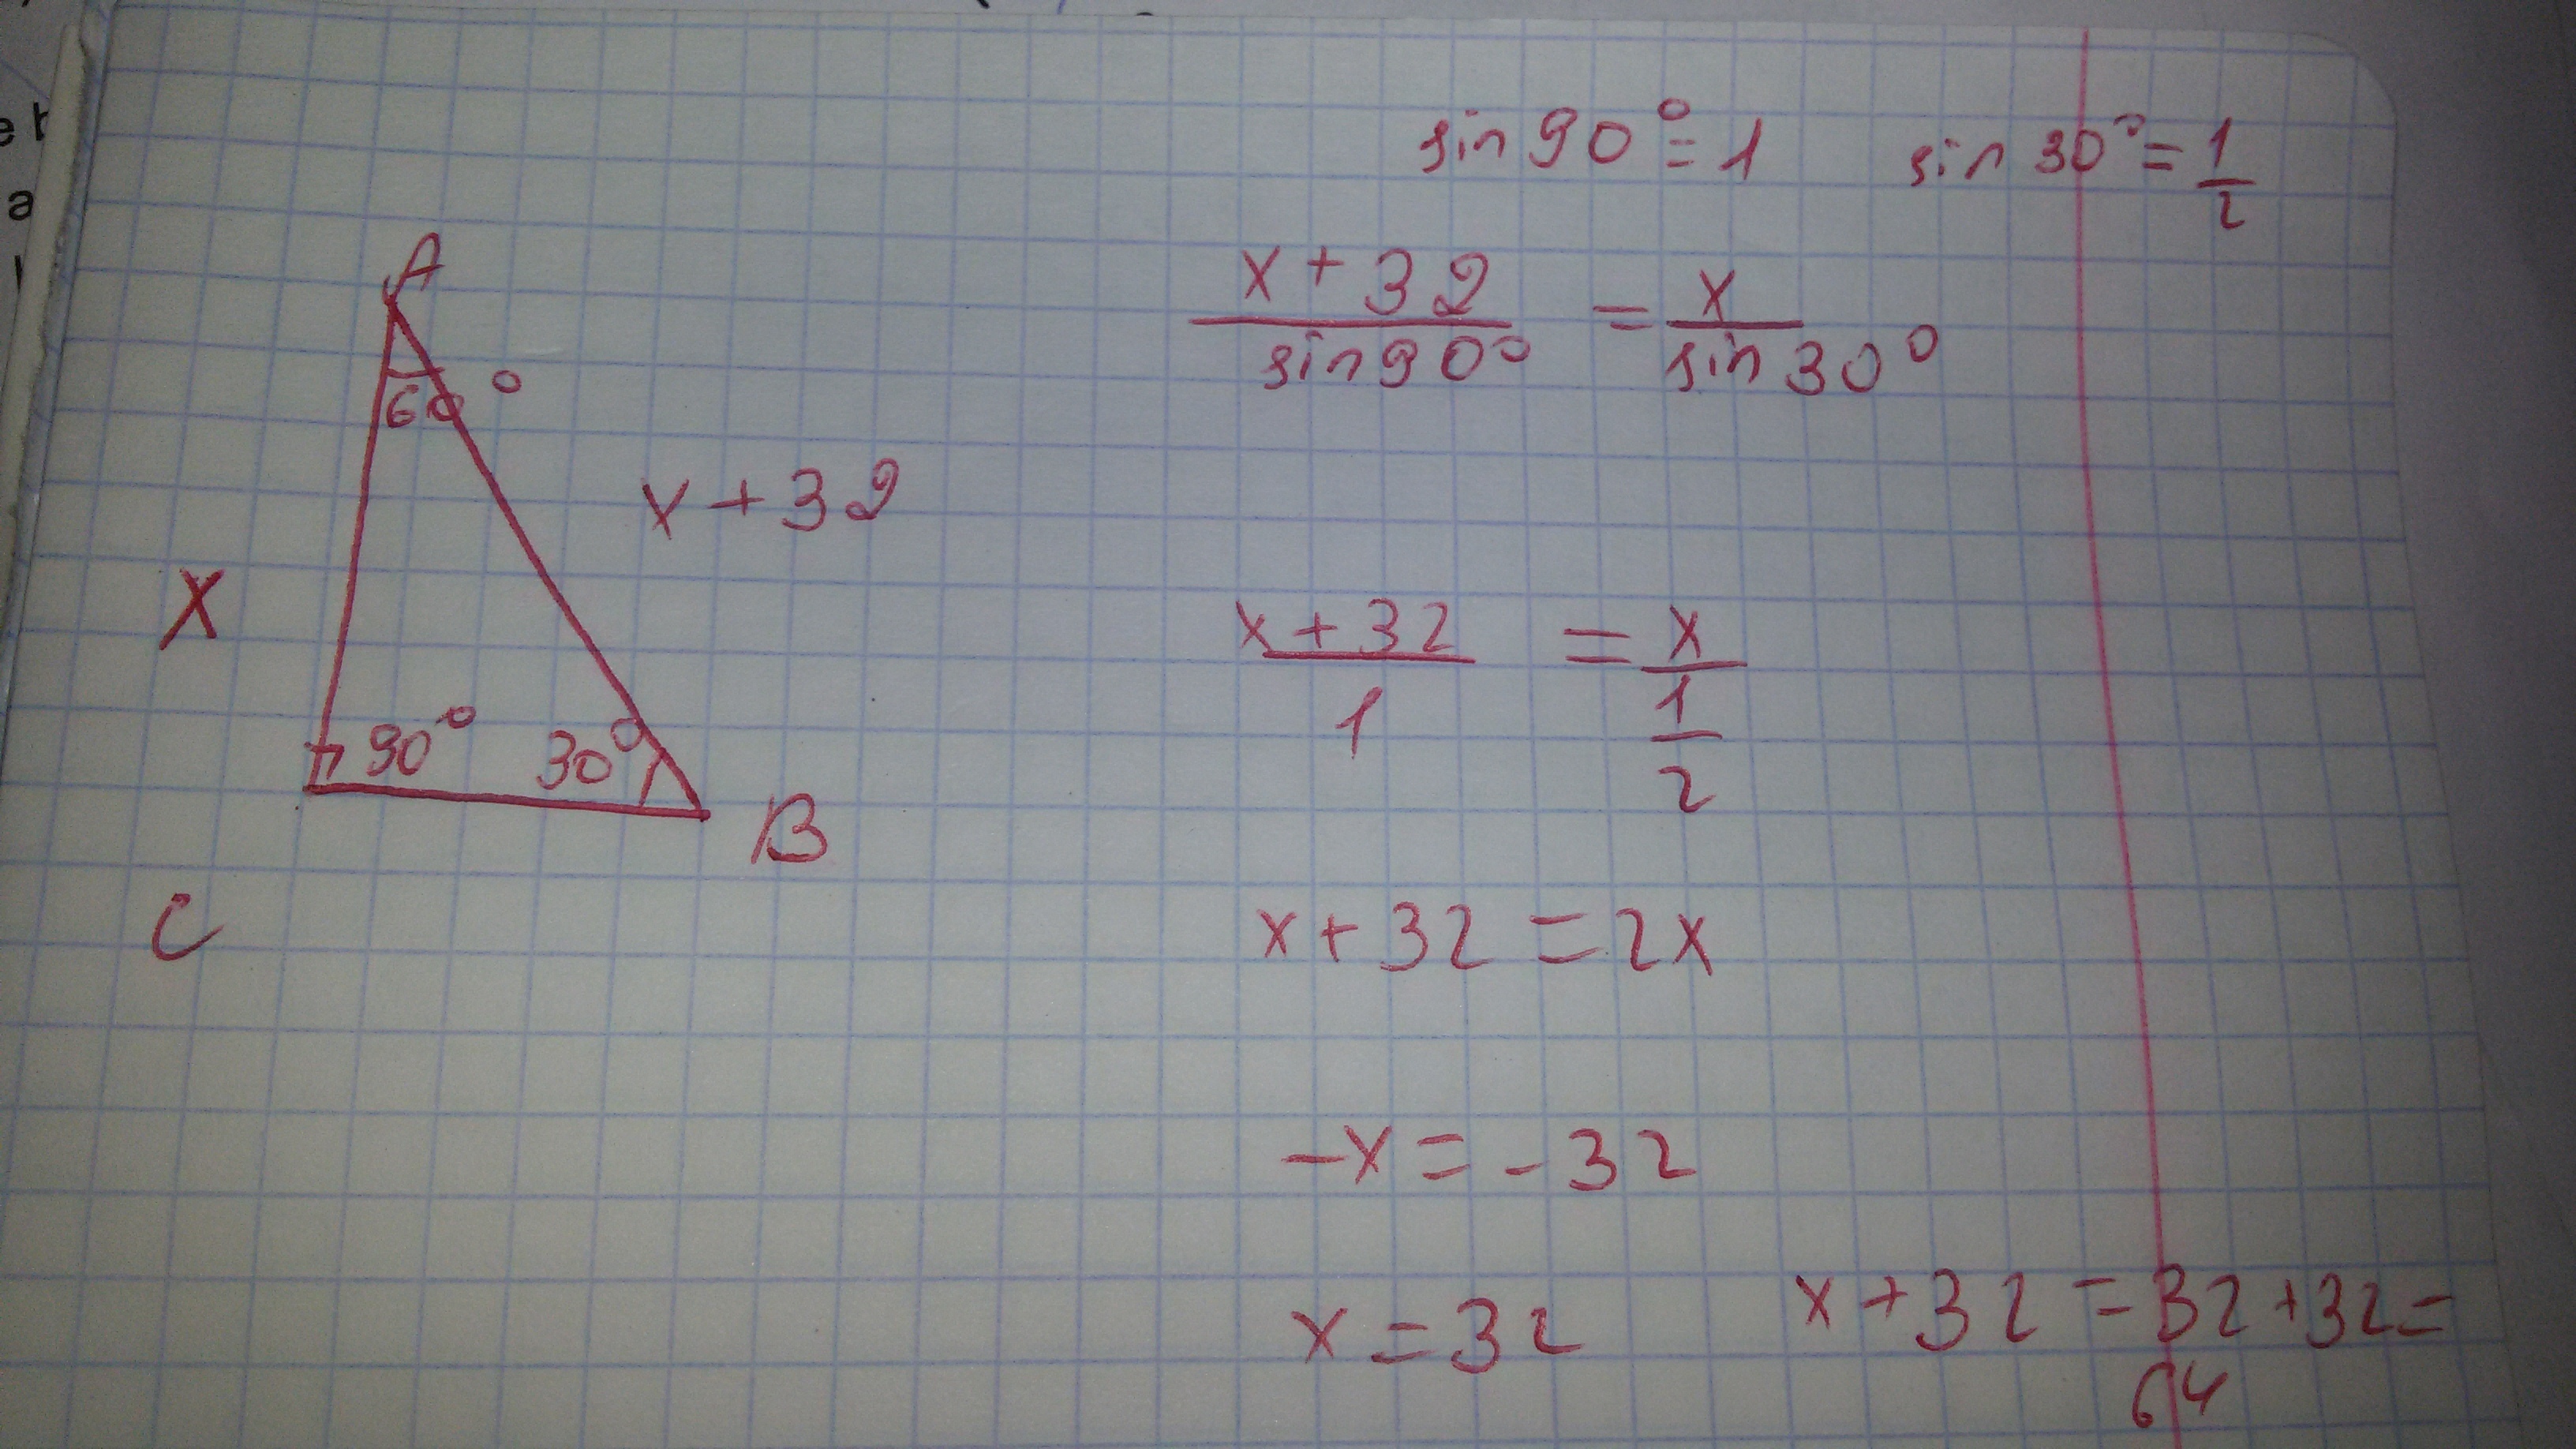 sin 90° = 1 sin 30° = 1/2
A
60°
x + 32
X
90° 30°
B
C
x + 32 / sin 90° = x / sin 30°
x + 32 / 1 = x / 1/2
x + 32 = 2x
-x = -32
x = 32 x + 32 = 32 + 32 =
64
e
a